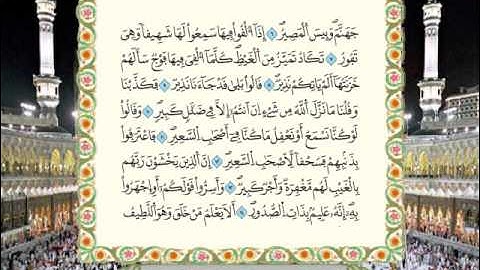 جَهَنَّمَ وَبِيسَ الْمَصِيرُ إِذَآ أُلْقُواْ فِيهَا سَمِعُواْ لَهَا شَهِيقاً وَهِيَ
تَفُورُ تَكَادُ تَمَيَّزُ مِنَ الْغَيْظِ كُلَّمَآ أُلْقِيَ فِيهَا فَوْجٌ سَأَلَهُمْ
خَزَنَتُهَآ أَلَمْ يَاتِكُمْ نَذِيرٌ قَالُواْ بَلَىٰ قَدْ جَآءَنَا نَذِيرٌ فَكَذَّبْنَا
وَقُلْنَا مَا نَزَّلَ اللَّهُ مِن شَيْءٍ إِنْ أَنتُمْ إِلَّا فِي ضَلَٰلٍ كَبِيرٍ وَقَالُواْ
لَوْ كُنَّا نَسْمَعُ أَوْ نَعْقِلُ مَا كُنَّا فِي أَصْحَٰبِ السَّعِيرِ فَاعْتَرَفُواْ
بِذَنۢبِهِمْ فَسُحْقاً لِّأَصْحَٰبِ السَّعِيرِ إِنَّ الَّذِينَ يَخْشَوْنَ رَبَّهُم
بِالْغَيْبِ لَهُم مَّغْفِرَةٌ وَأَجْرٌ كَبِيرٌ وَأَسِرُّواْ قَوْلَكُمْ أَوِ اجْهَرُواْ
بِهِ إِنَّهُ عَلِيمٌ بِذَاتِ الصُّدُورِ أَلَا يَعْلَمُ مَنْ خَلَقَ وَهُوَ اللَّطِيفُ